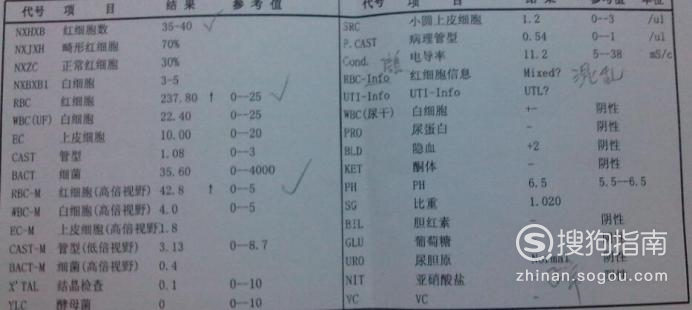 代号 项目 结果 参考值
NXHXB 红细胞数 35-40
NXJXH 畸形红细胞 70%
NXZC 正常红细胞 30%
NXBXB1 白细胞 3-5
RBC 红细胞 237.80 ↑ 0--25
WBC(UF) 白细胞 22.40 0--25
EC 上皮细胞 10.00 0--20
CAST 管型 1.08 0--3
BACT 细菌 35.60 0--4000
RBC-M 红细胞(高倍视野) 42.8 ↑ 0--5
WBC-M 白细胞(高倍视野) 4.0 0--5
EC-M 上皮细胞(高倍视野) 1.8
CAST-M 管型(低倍视野) 3.13 0--8.7
BACT-M 细菌(高倍视野) 0.4
X'TAL 结晶检查 0.1 0--10
YLC 酵母菌 0 0--10
代号 项目 结果 参考值 单位
SRC 小圆上皮细胞 1.2 0--3 /ul
P.CAST 病理管型 0.54 0--1 /ul
Cond. 电导率 11.2 5--38 mS/c
RBC-Info 红细胞信息 Mixed? 混乱
UTI-Info UTI-Info UTL?
WBC(尿干) 白细胞 +- 阴性
PRO 尿蛋白 - 阴性
BLD 隐血 +2 阴性
KET 酮体 - 阴性
PH PH 6.5 5.5--6.5
SG 比重 1.020
BIL 胆红素 - 阴性
GLU 葡萄糖 阴性
URO 尿胆原 Normal 阴性
NIT 亚硝酸盐 阴性
VC VC -
搜狗指南
zhinan.sogou.com